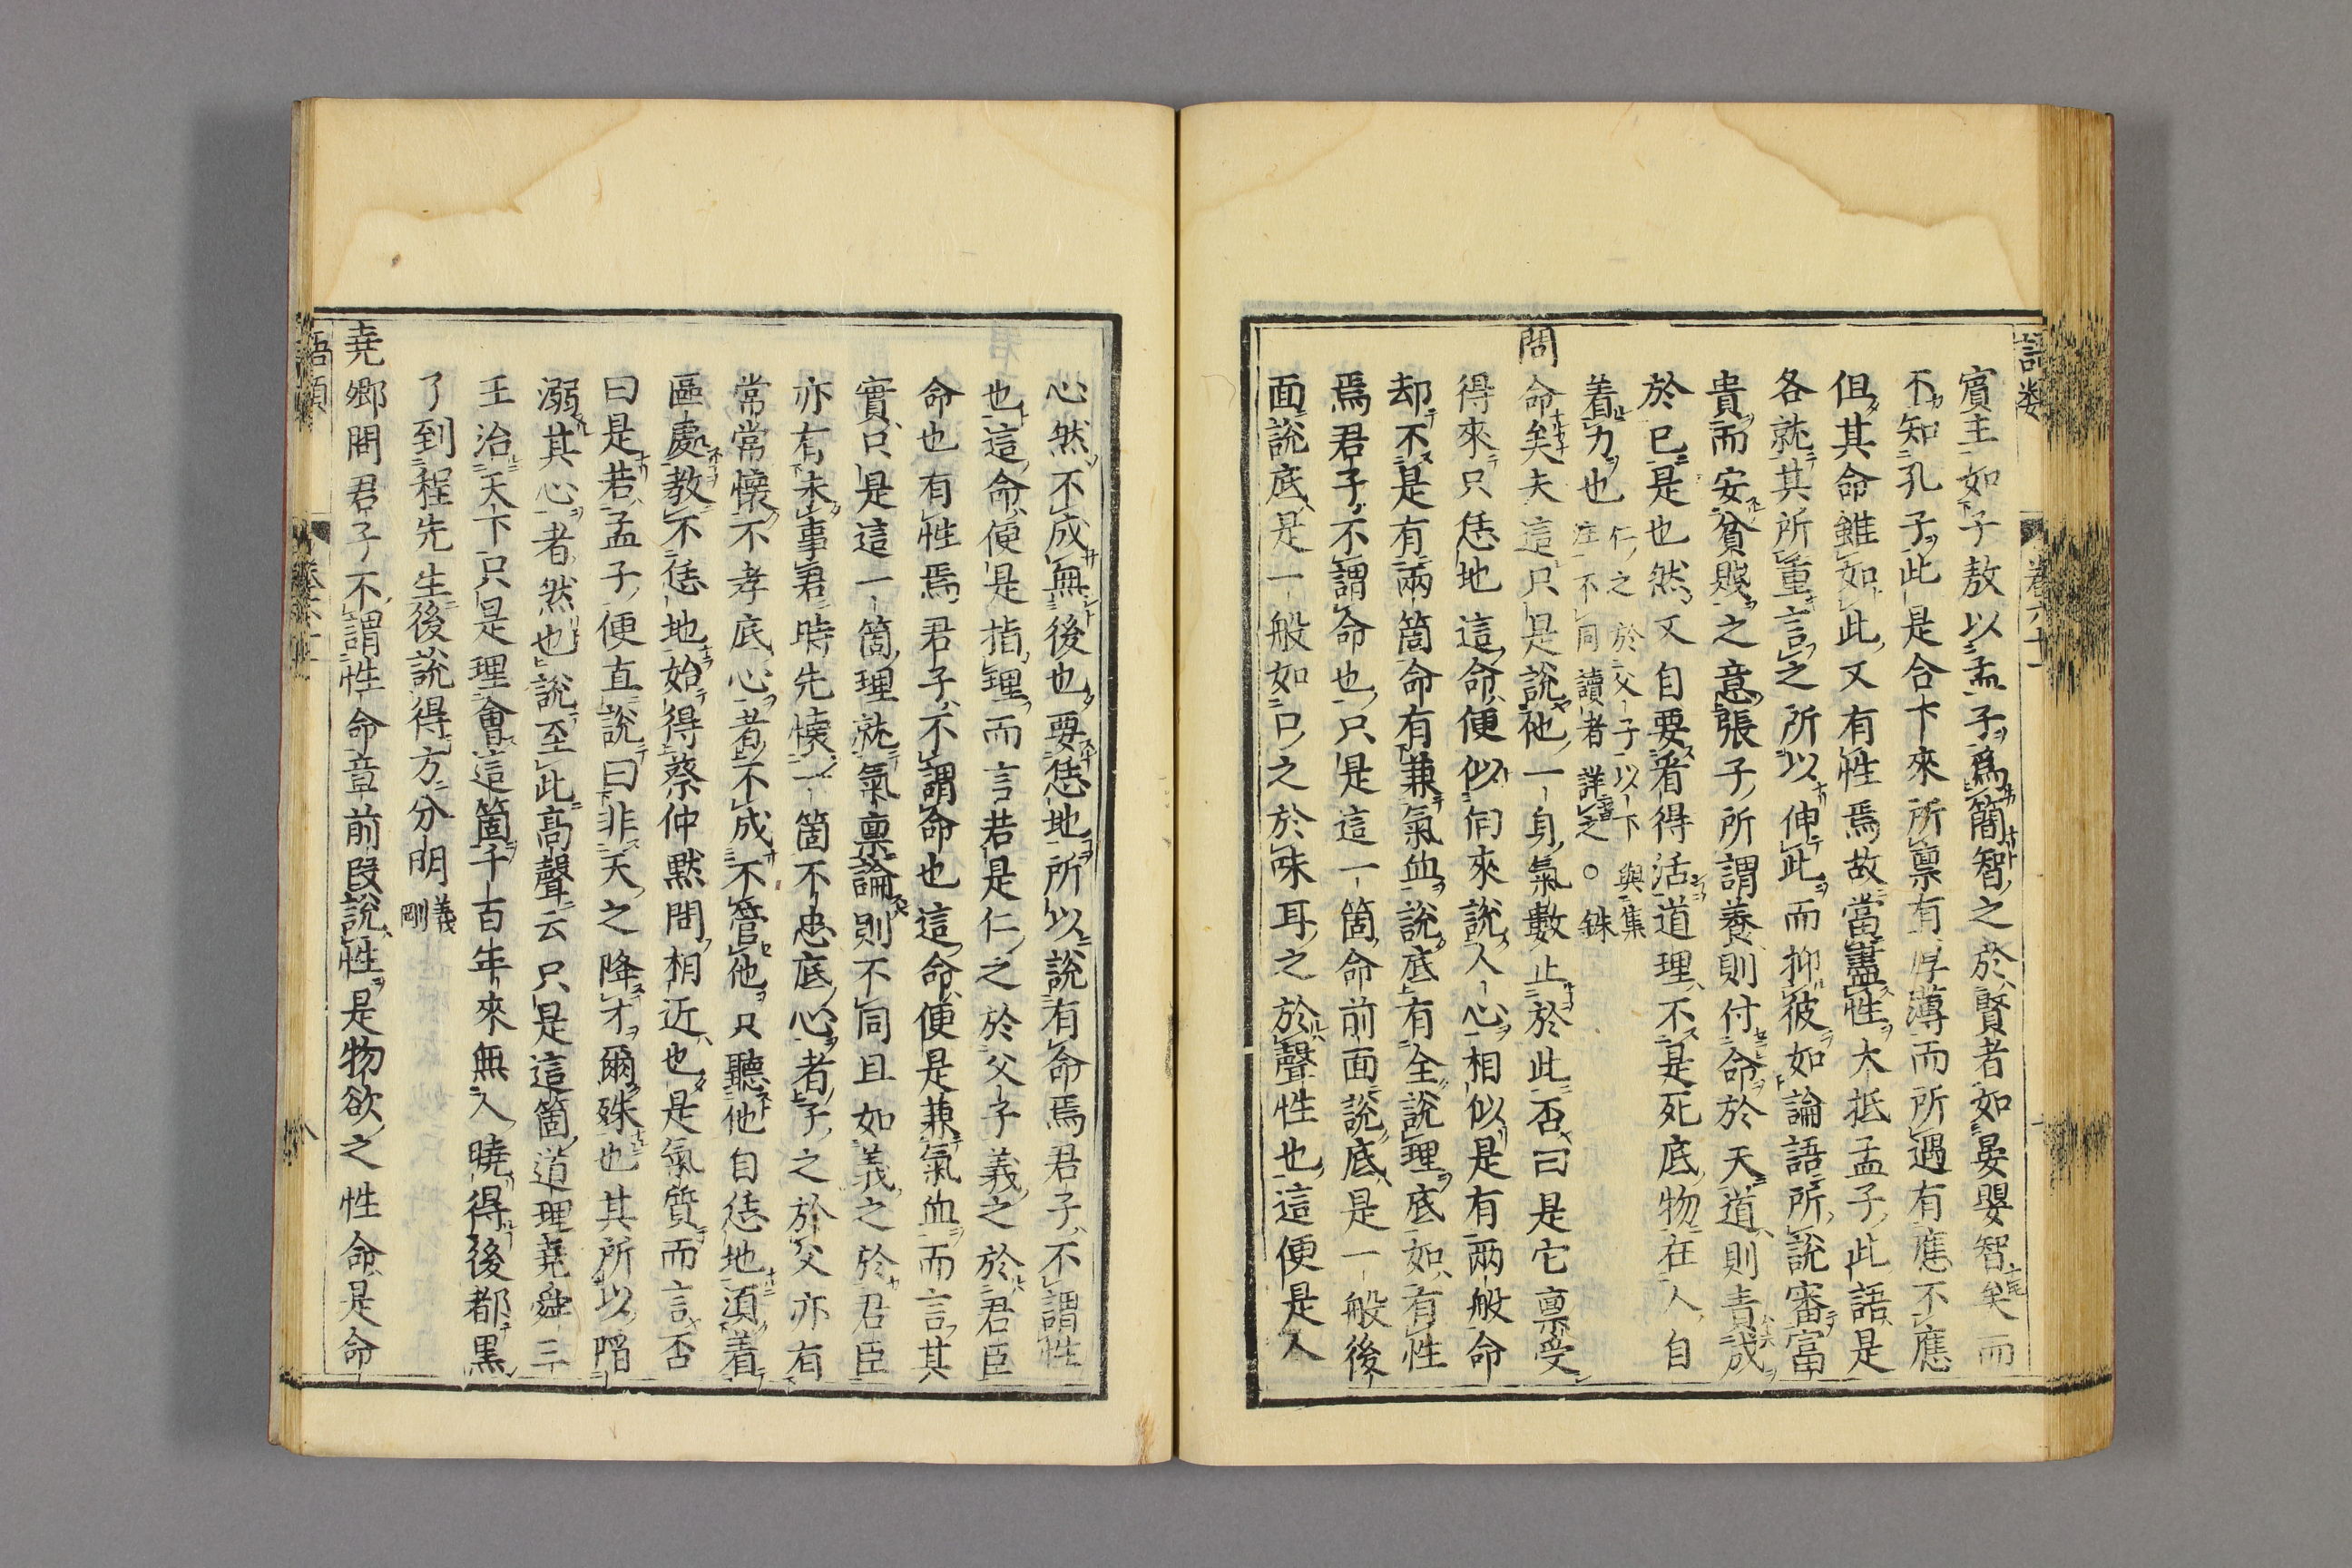 賓主如子敖以孟子爲簡智之於賢者如晏嬰智矣而
不知孔子此是合下來所稟有厚薄而所遇有應不應
但其命雖如此又有性焉故當盡性大抵孟子此語是
各就其所重言之所以伸此而抑彼如論語所說審富
貴而安貧賤之意張子所謂養則付命於天道則責成
於已是也然又自要看得活道理不是死底物在人自
着力也仁之於父子以下與集註不同讀者詳之○銖
問命矣夫這只是說他一身氣數止於此否曰是它稟受
得來只恁地這命便似向來說人心相似是有兩般命
却不是有兩箇命有兼氣血說底有全說理底如有性
焉君子不謂命也只是這一箇命前面說底是一般後
面說底是一般如口之於味耳之於聲性也這便是人
心然不成無後也要恁地所以說有命焉君子不謂性
也這命便是指理而言若是仁之於父子義之於君臣
命也有性焉君子不謂命也這命便是兼氣血而言其
實只是這一箇理就氣稟論則不同且如義之於君臣
亦有未事君時先懷一箇不忠底心者子之於父亦有
常常懷不孝底心者不成不管他只聽他自恁地須着
區處教不恁地始得蔡仲默問相近也是氣質而言否
曰是若孟子便直說曰非天之降才爾殊也其所以陷
溺其心者然也說至此高聲云只是這箇道理堯舜三
王治天下只是理會這箇千百年來無人曉得後都黑
了到程先生後說得方分明義剛
堯卿問君子不謂性命章前段說性是物欲之性命是命
語類
卷六十一
八